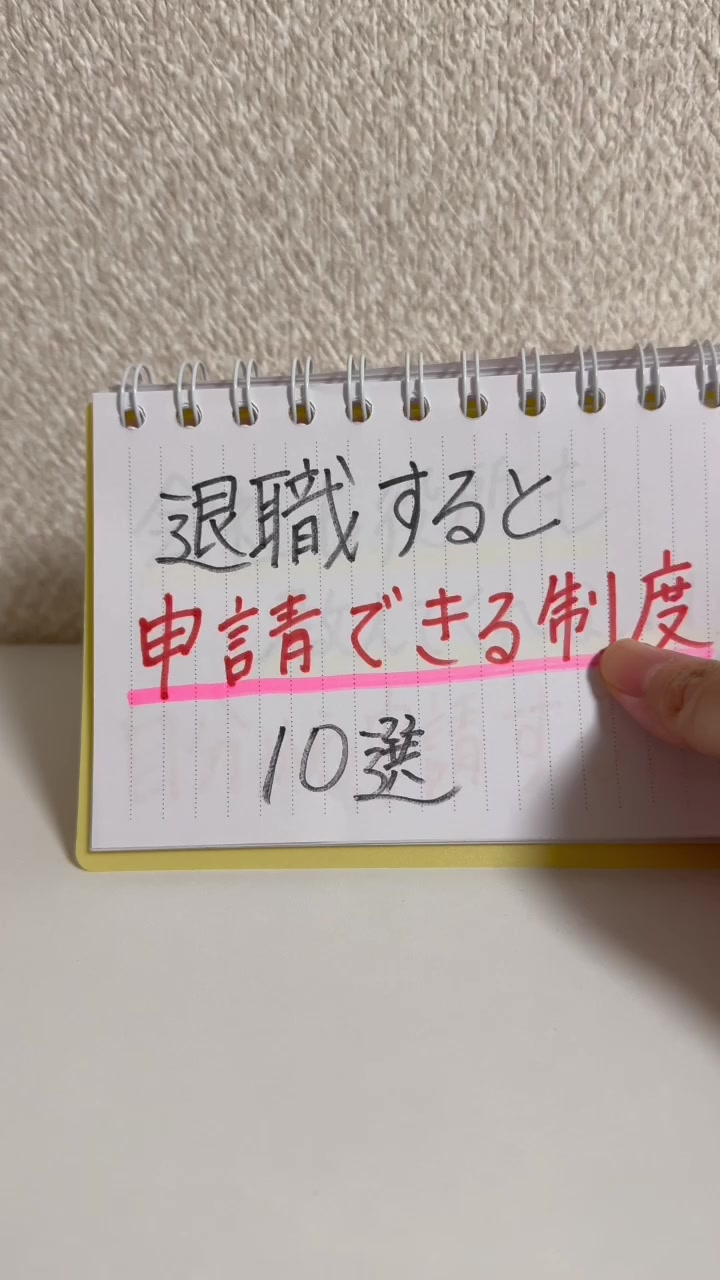 退職すると
申請できる制度
10選